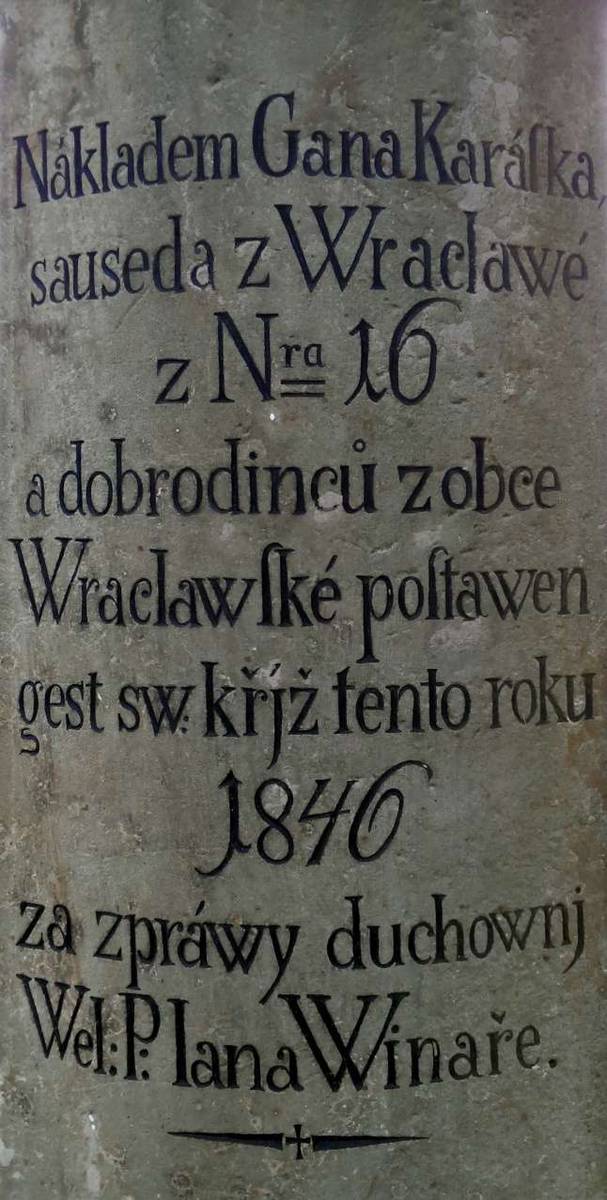 Nákladem Gana Karáſka,
sauseda z Wraclawé
z Nra 16
a dobrodinců z obce
Wraclawſké poſtawen
gest sw: křjž tento roku
1846
za zpráwy duchownj
Wel: P: Iana Winaře.